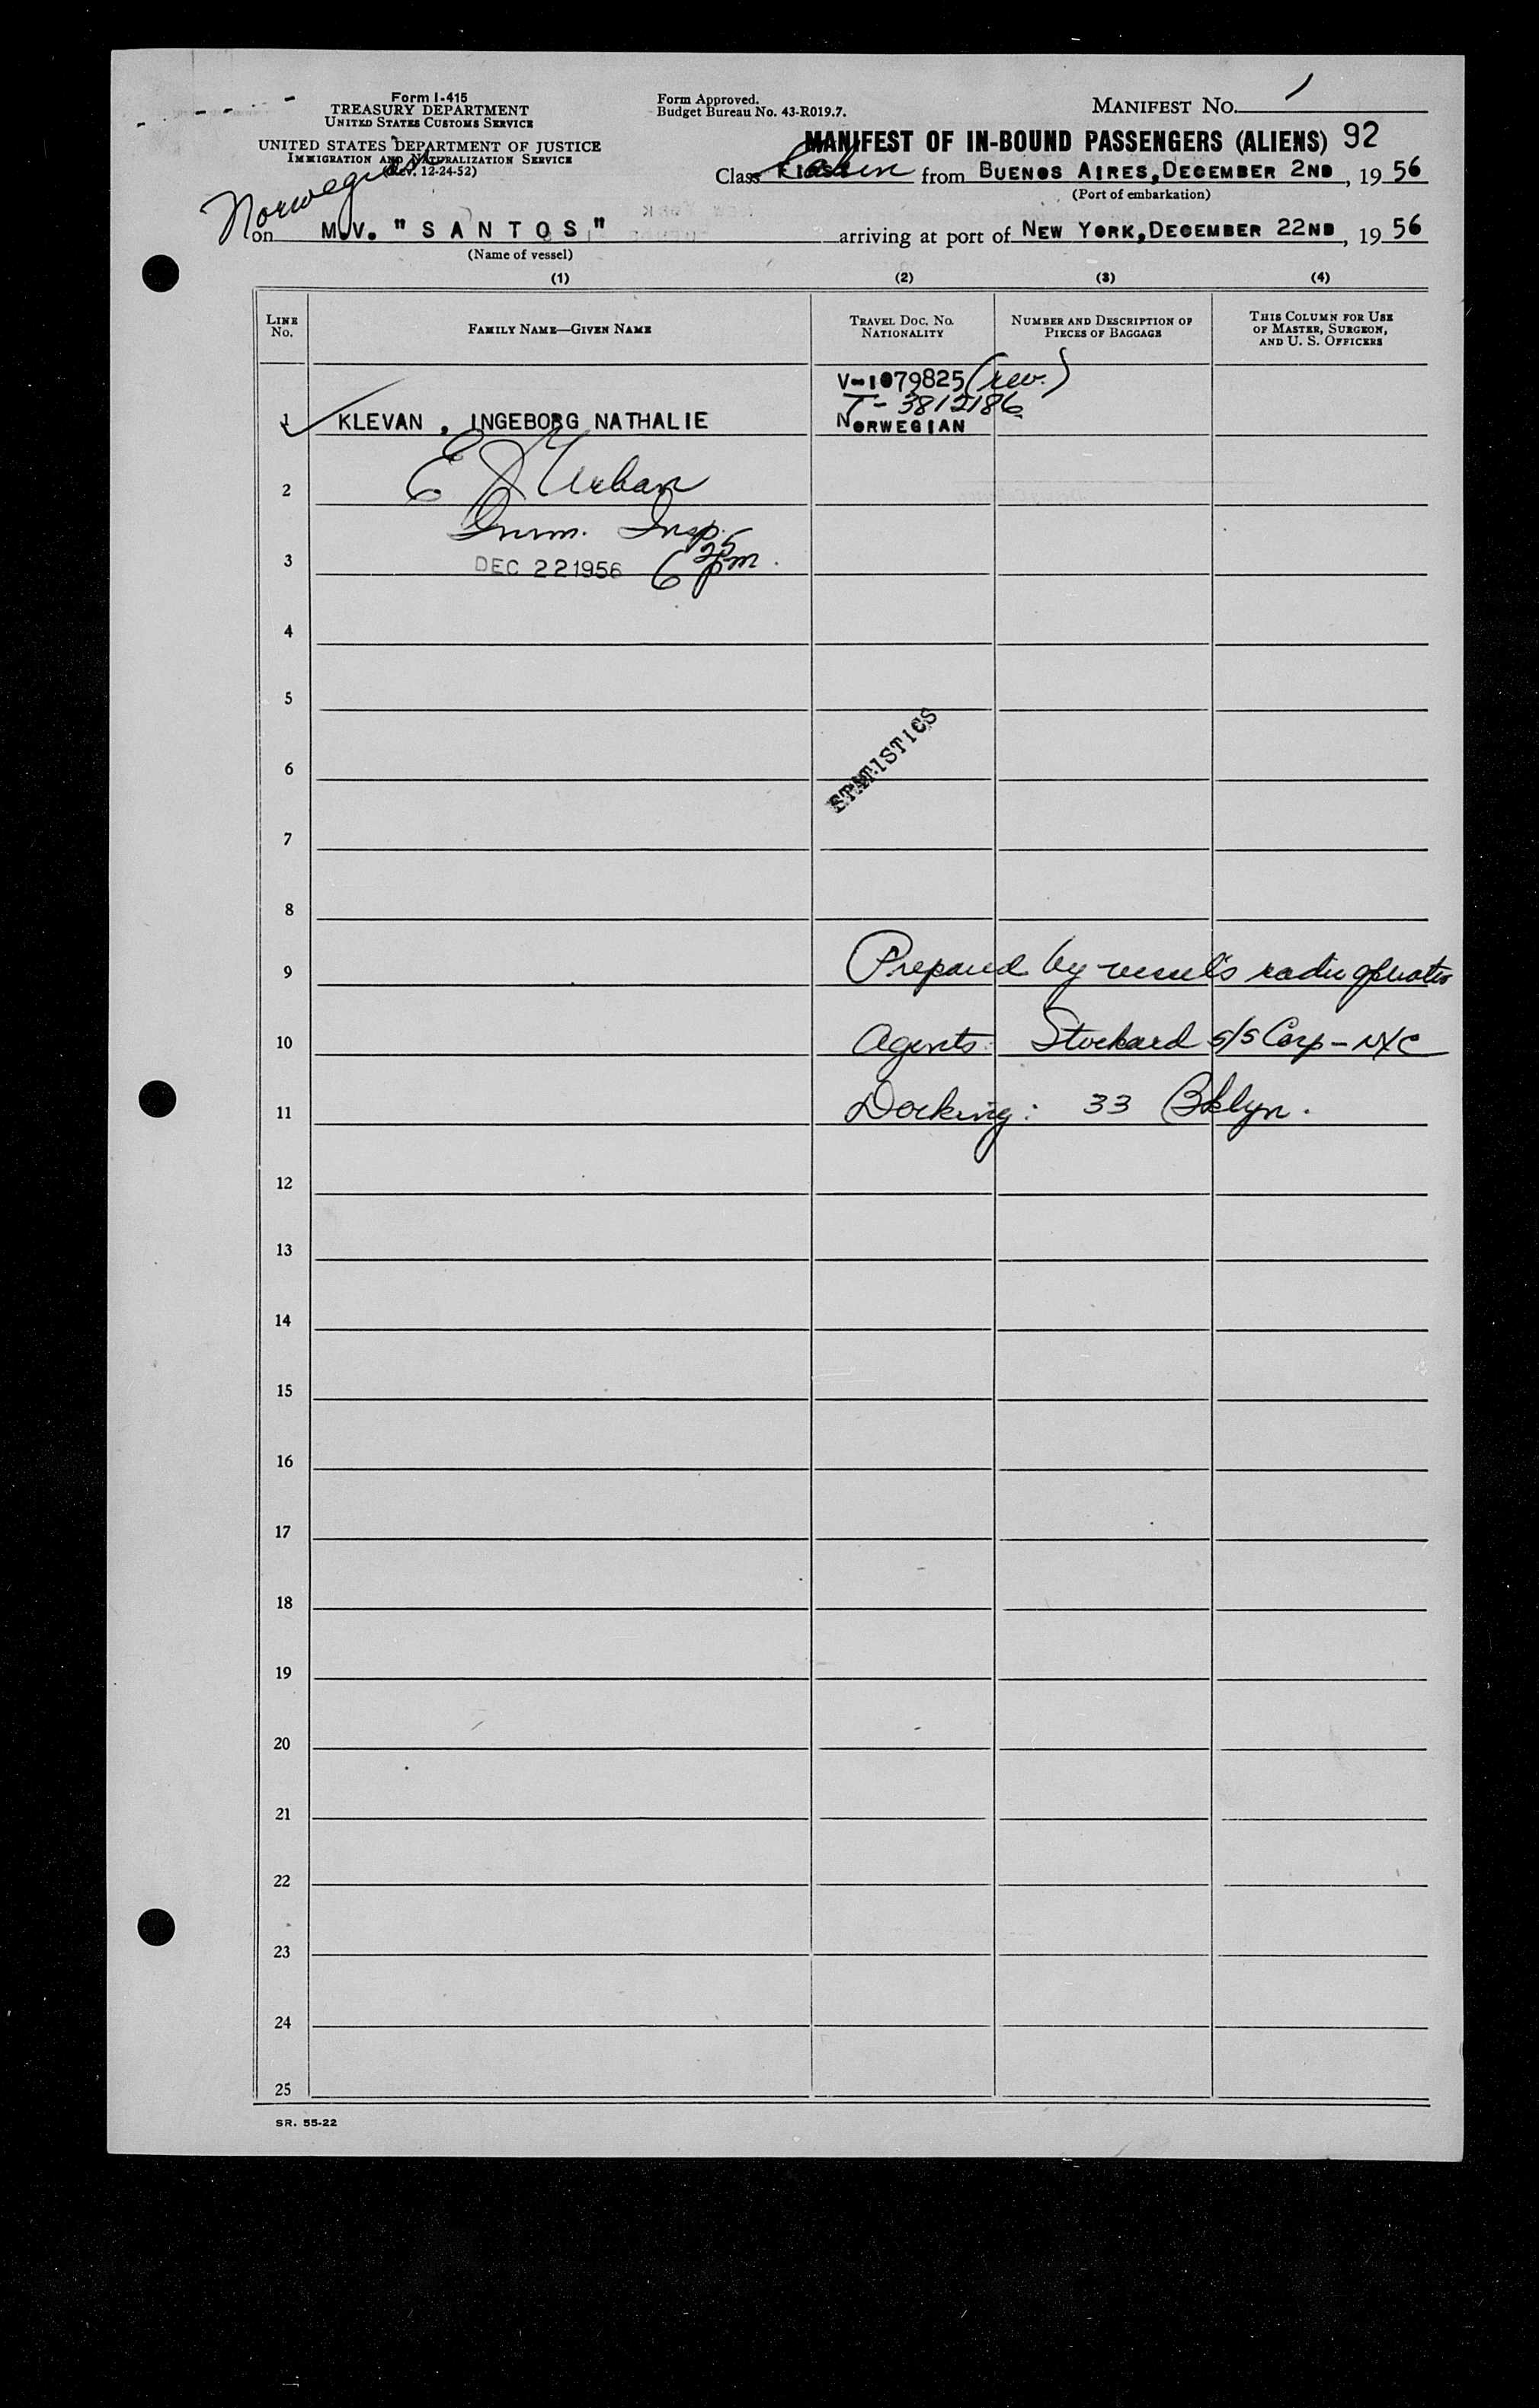 Form I-415
TREASURY DEPARTMENT
UNITED STATES CUSTOMS SERVICE
UNITED STATES DEPARTMENT OF JUSTICE
IMMIGRATION AND NATURALIZATION SERVICE
(Rev. 12-24-52)
Form Approved.
Budget Bureau No. 43-R019.7.
MANIFEST NO. 1
MANIFEST OF IN-BOUND PASSENGERS (ALIENS) 92
Class Cabin from BUENOS AIRES, DECEMBER 2ND, 19 56
(Port of embarkation)
Norwegian
on M.V. "SANTOS" arriving at port of NEW YORK, DECEMBER 22ND, 19 56
(Name of vessel)
(1) (2) (3) (4)
LINE No. FAMILY NAME—GIVEN NAME TRAVEL DOC. NO. NATIONALITY NUMBER AND DESCRIPTION OF PIECES OF BAGGAGE THIS COLUMN FOR USE OF MASTER, SURGEON, AND U. S. OFFICERS
V-1079825 (rev.)
T-3812186
1 KLEVAN, INGEBORG NATHALIE NORWEGIAN
2 E J Urban
Imm. Insp.
3 DEC 22 1956 6 25 pm.
4
5
STATISTICS
6
7
8
9 Prepared by vessel's radio operator
10 Agents: Stockard S/S Corp - NYC
11 Docking: 33 Bklyn.
12
13
14
15
16
17
18
19
20
21
22
23
24
25
SR. 55-22